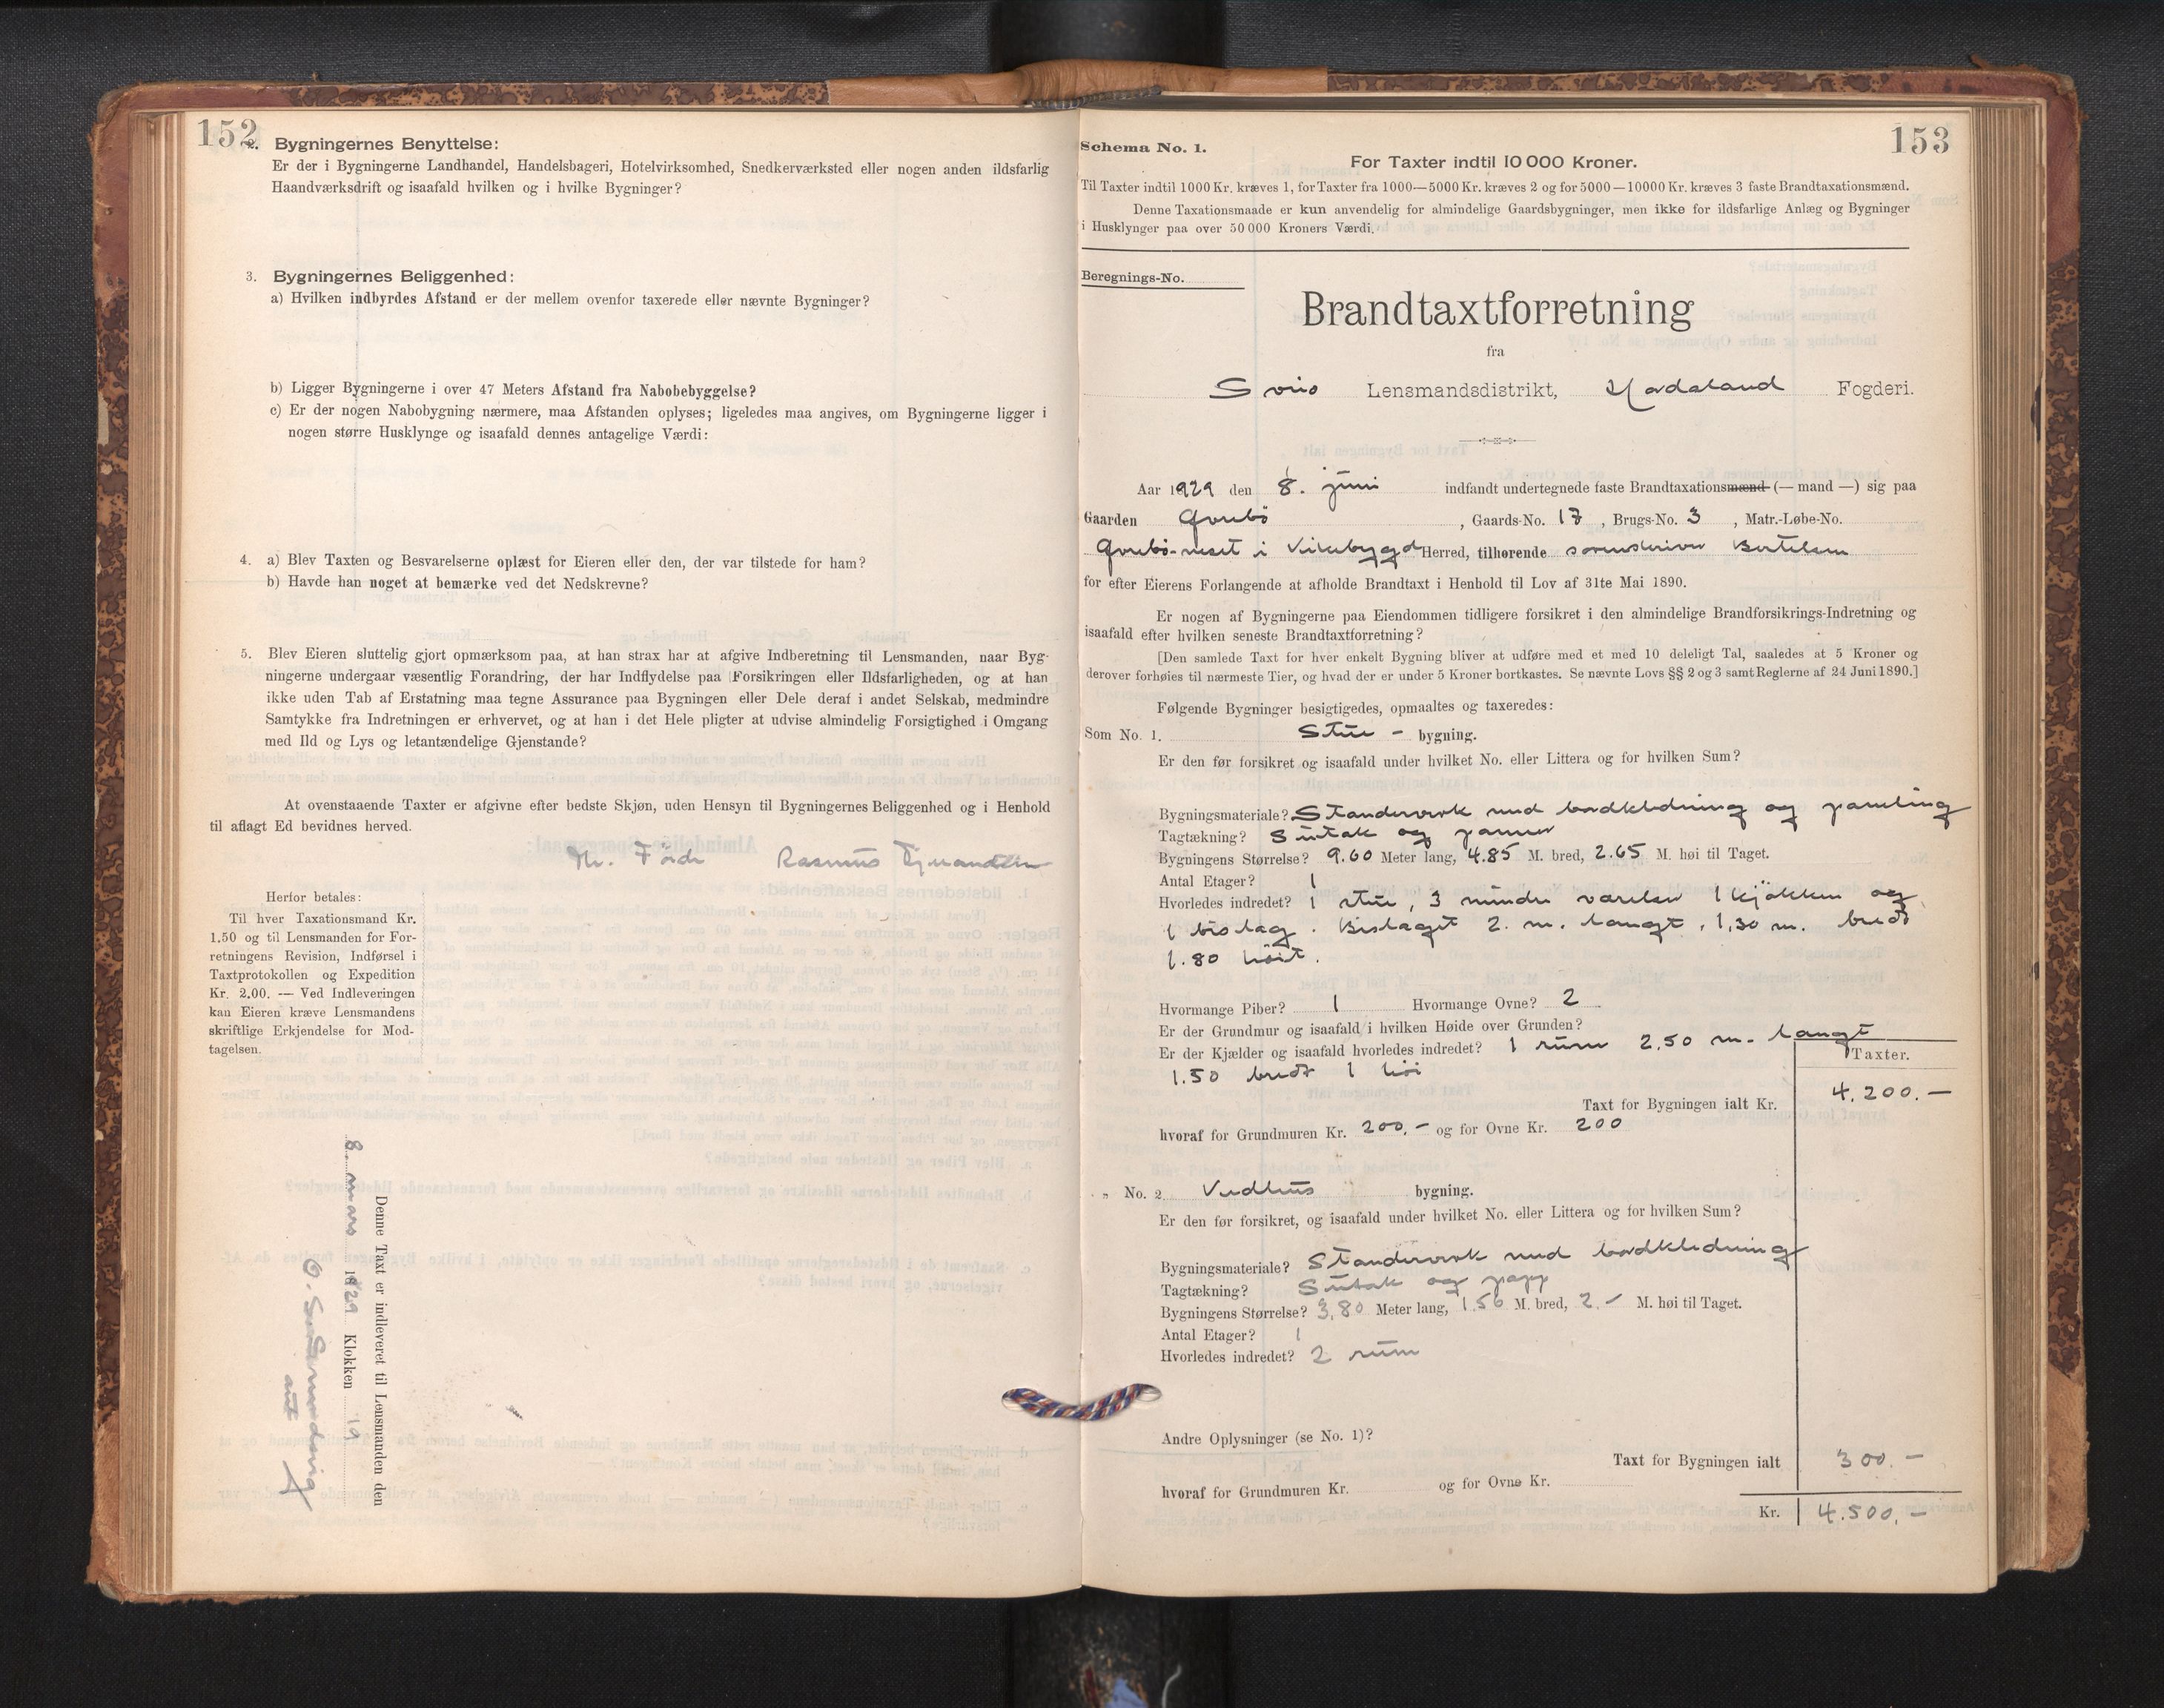 152
2. Bygningernes Benyttelse:
Er der i Bygningerne Landhandel, Handelsbageri, Hotelvirksomhed, Snedkerværksted eller nogen anden ildsfarlig
Haandværksdrift og isaafald hvilken og i hvilke Bygninger?
3. Bygningernes Beliggenhed:
a) Hvilken indbyrdes Afstand er der mellem ovenfor taxerede eller nævnte Bygninger?
b) Ligger Bygningerne i over 47 Meters Afstand fra Nabobebyggelse?
c) Er der nogen Nabobygning nærmere, maa Afstanden oplyses; ligeledes maa angives, om Bygningerne ligger i
nogen større Husklynge og isaafald dennes antagelige Værdi:
4. a) Blev Taxten og Besvarelserne oplæst for Eieren eller den, der var tilstede for ham?
b) Havde han noget at bemærke ved det Nedskrevne?
5. Blev Eieren sluttelig gjort opmærksom paa, at han strax har at afgive Indberetning til Lensmanden, naar Byg-
ningerne undergaar væsentlig Forandring, der har Indflydelse paa Forsikringen eller Ildsfarligheden, og at han
ikke uden Tab af Erstatning maa tegne Assurance paa Bygningen eller Dele deraf i andet Selskab, medmindre
Samtykke fra Indretningen er erhvervet, og at han i det Hele pligter at udvise almindelig Forsigtighed i Omgang
med Ild og Lys og letantændelige Gjenstande?
At ovenstaaende Taxter er afgivne efter bedste Skjøn, uden Hensyn til Bygningernes Beliggenhed og i Henhold
til aflagt Ed bevidnes herved.
Førde Rasmus
Herfor betales:
Til hver Taxationsmand Kr.
1.50 og til Lensmanden for For-
retningens Revision, Indførsel i
Taxtprotokollen og Expedition
Kr. 2.00. — Ved Indleveringen
kan Eieren kræve Lensmandens
skriftlige Erkjendelse for Mod-
tagelsen.
Denne Taxt er indleveret til Lensmanden den
8. mars 1929 Klokken 19
Schema No. 1.
153
For Taxter indtil 10 000 Kroner.
Til Taxter indtil 1000 Kr. kræves 1, for Taxter fra 1000—5000 Kr. kræves 2 og for 5000—10000 Kr. kræves 3 faste Brandtaxationsmænd.
Denne Taxationsmaade er kun anvendelig for almindelige Gaardsbygninger, men ikke for ildsfarlige Anlæg og Bygninger
i Husklynger paa over 50 000 Kroners Værdi.
Beregnings-No.
Brandtaxtforretning
fra
Sveio Lensmandsdistrikt, Hordaland Fogderi.
Aar 1929 den 8. juni indfandt undertegnede faste Brandtaxationsmænd (— mand —) sig paa
Gaarden Kvebø, Gaards-No. 17, Brugs-No. 3, Matr.-Løbe-No.
-neset i Vikebygd Herred, tilhørende sorenskriver Bertelsen
for efter Eierens Forlangende at afholde Brandtaxt i Henhold til Lov af 31te Mai 1890.
Er nogen af Bygningerne paa Eiendommen tidligere forsikret i den almindelige Brandforsikrings-Indretning og
isaafald efter hvilken seneste Brandtaxtforretning?
[Den samlede Taxt for hver enkelt Bygning bliver at udføre med et med 10 deleligt Tal, saaledes at 5 Kroner og
derover forhøies til nærmeste Tier, og hvad der er under 5 Kroner bortkastes. Se nævnte Lovs §§ 2 og 3 samt Reglerne af 24 Juni 1890.]
Følgende Bygninger besigtigedes, opmaaltes og taxeredes:
Som No. 1. Stue - bygning.
Er den før forsikret og isaafald under hvilket No. eller Littera og for hvilken Sum?
Bygningsmateriale? Standerverk med bordkledning og paneling
Tagtækning? Sutak og panner
Bygningens Størrelse? 9.60 Meter lang, 4.85 M. bred, 2.65 M. høi til Taget.
Antal Etager? 1
Hvorledes indredet? 1 stue, 3 mindre værelser 1 kjøkken og
1 bislag. Bislaget 2. m. langt, 1,30 m. bredt
1.80 høit.
Hvormange Piber? 1 Hvormange Ovne? 2
Er der Grundmur og isaafald i hvilken Høide over Grunden?
Er der Kjælder og isaafald hvorledes indredet? 1 rum 2.50 m. langt
1.50 bredt 1 høi
Taxter.
Taxt for Bygningen ialt Kr. 4.200.—
hvoraf for Grundmuren Kr. 200.- og for Ovne Kr. 200
„ No. 2. Vedhus bygning.
Er den før forsikret, og isaafald under hvilket No. eller Littera og for hvilken Sum?
Bygningsmateriale? Standerverk med bordkledning
Tagtækning? Sutak og papp
Bygningens Størrelse? 3,80 Meter lang, 1.56 M. bred, 2.- M. høi til Taget.
Antal Etager? 1
Hvorledes indredet? 2 rum
Andre Oplysninger (se No. 1)?
Taxt for Bygningen ialt 300.—
hvoraf for Grundmuren Kr. og for Ovne Kr.
Kr. 4.500.—